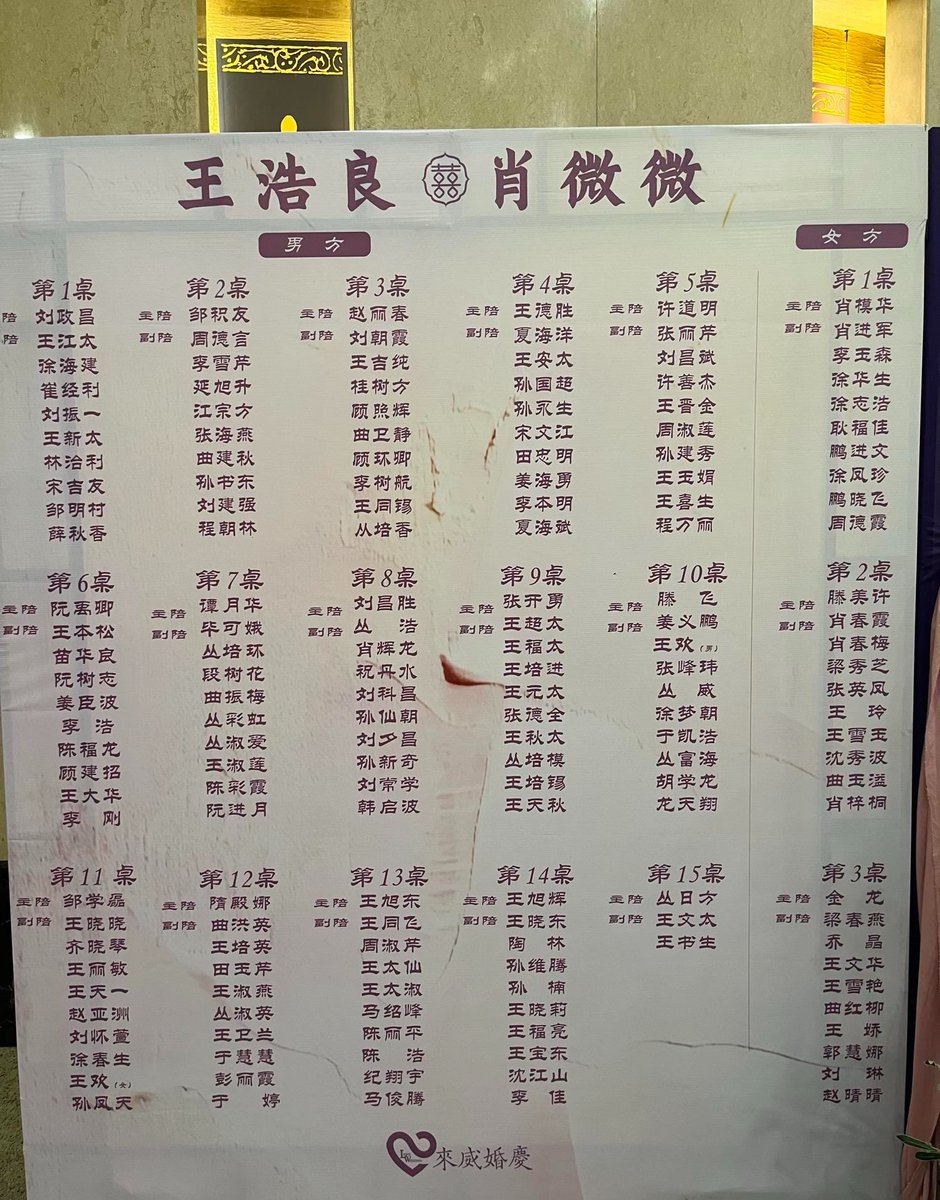 王浩良 囍 肖微微
男方
女方
第1桌
陪 刘政昌
陪 王江太
徐海建
崔经利
刘振一
王新太
林治利
宋吉友
邹明村
薛秋香
第2桌
主陪 邹积友
副陪 周德言
李雪芹
延旭升
江宗方
张海燕
曲建秋
孙书东
刘建强
程朝林
第3桌
主陪 赵丽春
副陪 刘朝霞
王吉纯
桂树方
顾照辉
曲卫静
顾环卿
李树航
王同锡
丛培香
第4桌
主陪 王德胜
副陪 夏海洋
王安太
孙国超
孙永生
宋文江
田忠明
姜海勇
李本明
夏海斌
第5桌
主陪 许道明
副陪 张丽芹
刘昌斌
许善杰
王晋金
周淑莲
孙建秀
王玉娟
王喜生
程万丽
第1桌
主陪 肖模华
副陪 肖进军
李玉森
徐华生
徐志浩
耿福佳
鹏进文
徐凤珍
鹏晓飞
周德霞
第6桌
主陪 阮禹卿
副陪 王本松
苗华良
阮树志
姜臣波
李浩
陈福龙
顾建招
王大华
李刚
第7桌
主陪 谭月华
副陪 毕可娥
丛培环
段树花
曲振梅
丛彩虹
丛淑爱
王淑莲
陈彩霞
阮进月
第8桌
主陪 刘昌胜
副陪 丛浩
肖辉龙
祝丹水
刘科昌
孙仙朝
刘夕昌
孙新奇
刘常学
韩启波
第9桌
主陪 张开勇
副陪 王超太
王福太
王培进
王元太
张德全
王秋太
丛培模
王培锡
王天秋
第10桌
主陪 滕飞
副陪 姜义鹏
王欢(男)
张峰玮
丛威
徐梦朝
于凯浩
丛富海
胡学龙
龙天翔
第2桌
主陪 滕美许
副陪 肖春霞
肖春梅
梁秀芝
张英凤
王玲
王雪玉
沈秀波
曲玉溢
肖梓桐
第11桌
主陪 邹学磊
副陪 王晓晓
齐晓琴
王丽敏
王天一
赵亚洲
刘怀萱
徐春生
王欢(女)
孙凤天
第12桌
主陪 隋殿娜
副陪 曲洪英
王培英
田玉芹
王淑燕
丛淑英
王卫兰
于慧慧
彭丽霞
于婷
第13桌
主陪 王旭东
副陪 王同飞
周淑芹
王太仙
王太淑
马绍峰
陈丽平
陈浩
纪翔宇
马俊腾
第14桌
主陪 王旭辉
副陪 王晓东
陶林
孙维腾
孙楠
王晓莉
王福亮
王宝东
沈江山
李佳
第15桌
主陪 丛日方
副陪 王文太
王书生
第3桌
主陪 金龙
副陪 梁春燕
乔晶
王文华
王雪艳
曲红柳
王娇
郭慧娜
刘琳
赵晴晴
來威婚慶